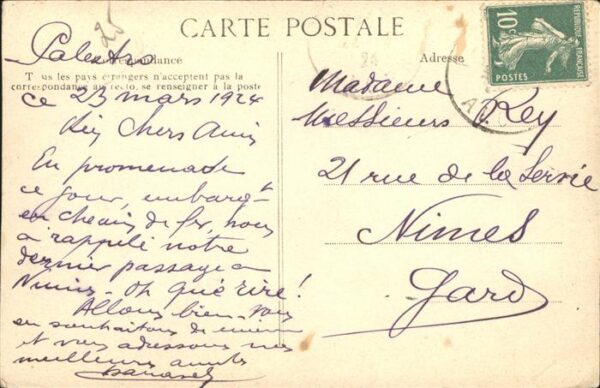 CARTE POSTALE
25
Palestro
Correspondance
Adresse
Tous les pays étrangers n'acceptent pas la
correspondance au recto, se renseigner à la poste
ce 23 mars 1924
Chers Amis
En promenade
ce jour, embarqt
en chemin de fer, nous
a rappelé notre
dernier passage a
Nimes - oh que rire!
Allons bien - vous
en souhaitons de même
et vous adressons nos
meilleures
Madame
Messieurs Rey
21 rue de la Servie
Nimes
Gard
10c
REPUBLIQUE FRANÇAISE
POSTES
24